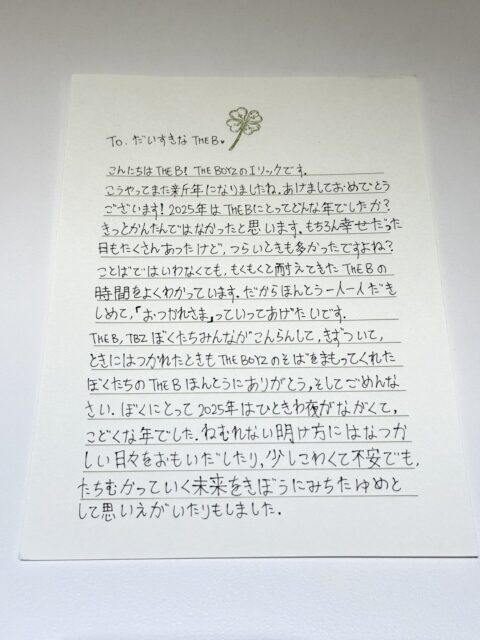 To. だいすきな THE B♥
こんにちは THE B! THE BOYZのエリックです.
こうやってまた新年になりましたね. あけましておめでとう
ございます! 2025年は THE Bにとってどんな年でしたか?
きっとかんたんではなかったと思います. もちろん幸せだった
日もたくさんあったけど, つらいときも多かったですよね?
ことばではいわなくても, もくもくと耐えてきた THE Bの
時間をよくわかっています. だからほんとう一人一人だき
しめて,「おつかれさま」っていってあげたいです.
THE B, TBZ ぼくたちみんながこんらんして, きずついて,
ときにはつかれたときも THE BOYZのそばをまもってくれた
ぼくたちの THE B ほんとうにありがとう, そしてごめんな
さい. ぼくにとって 2025年はひときわ夜がながくて,
こどくな年でした. ねむれない明け方にはなつか
しい日々をおもいだしたり, 少しこわくて不安でも,
たちむかっていく未来をきぼうにみちたゆめと
して思いえがいたりもしました.